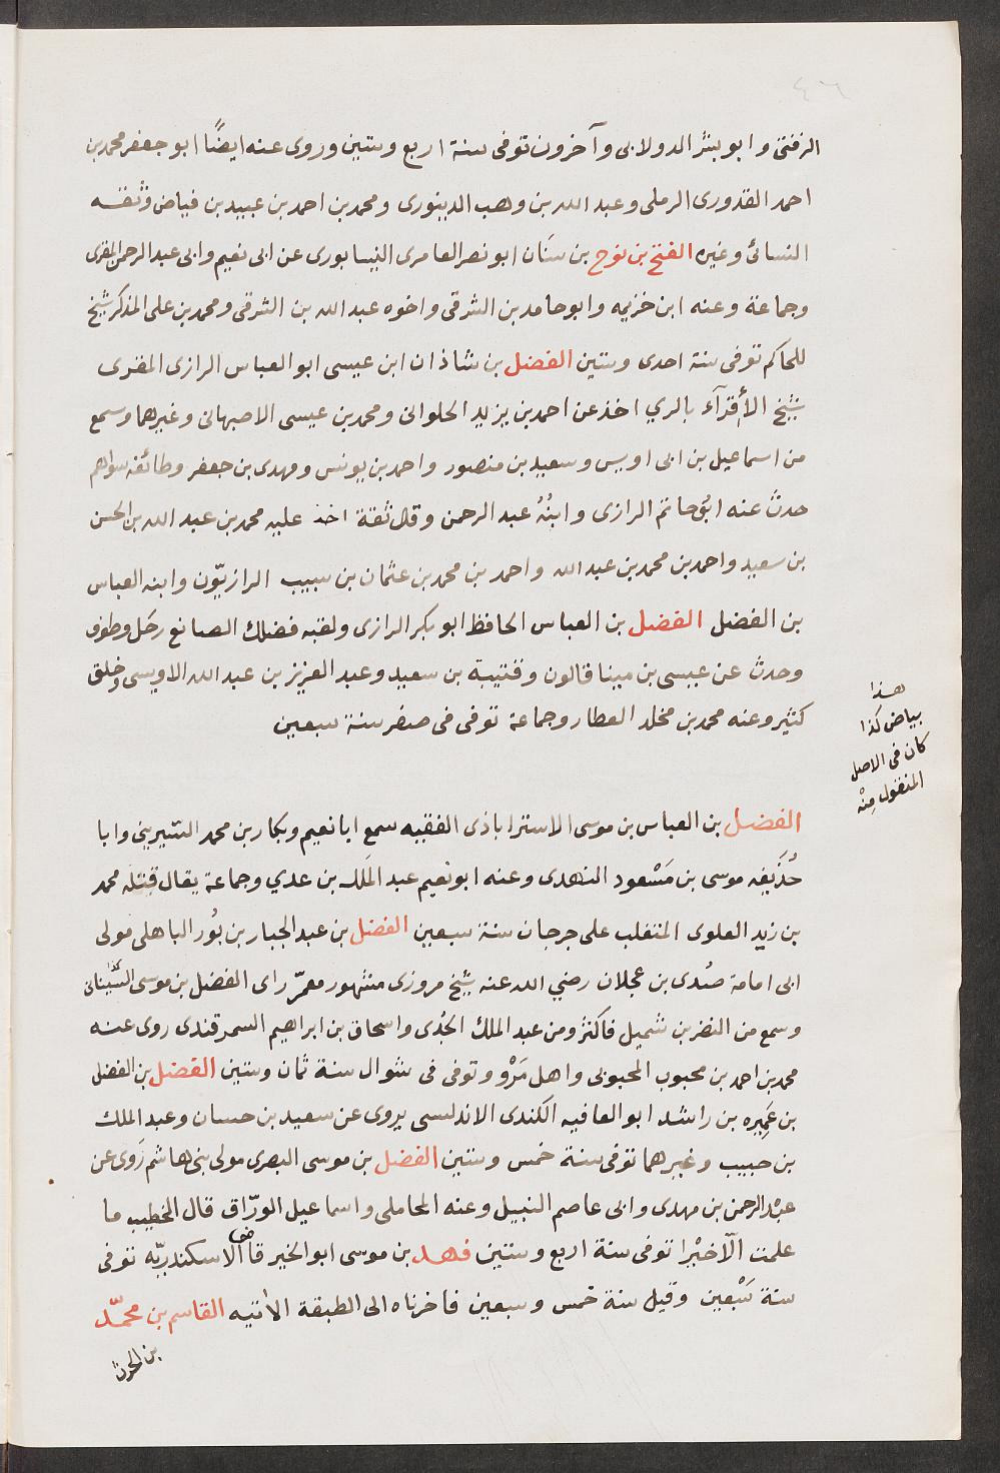 ٤٦
الزفتى وابو بشر الدولابى وآخرون توفى سنة اربع وستين وروى عنه ايضًا ابو جعفر محمد بن
احمد القدورى الرملى وعبد الله بن وهب الدينورى ومحمد بن احمد بن عبيد بن فياض وثقه
النسائى وغيره الفتح بن نوح بن سنَان ابو نصر العامرى النيسابورى عن ابى نعيم وابى عبد الرحمن المقرى
وجماعة وعنه ابن خزيمه وابو حامد بن الشرقى واخوه عبد الله بن الشرقى ومحمد بن على المذكر شيخ
للحاكم توفى سنة احدى وستين الفضل بن شاذان ابن عيسى ابو العباس الرازى المقرى
شيخ الأِقرآء بالري اخذ عن احمد بن يزيد الحلوانى ومحمد بن عيسى الاصبهانى وغيرهما وسمع
من اسماعيل بن ابى اويس وسعيد بن منصور واحمد بن يونس ومهدى بن جعفر وطائفه سواهم
حدثَ عنه ابُو حاتم الرازى وابنُهُ عبد الرحمن وقال ثقة اخذ عليه محمد بن عبد الله بن الحسن
بن سعيد واحمد بن محمد بن عبد الله واحمد بن محمد بن عثمان بن سبيب الرازيّون وابنه العباس
بن الفضل الفضل بن العباس الحافظ ابو بكر الرازى ولقبه فضلك الصائغ رحَل وطوف
وحدث عن عيسى بن مينا قالون وقتيبة بن سعيد وعبد العزيز بن عبد الله الاويسى وخلق
كثير وعنه محمد بن مخلد العطار وجماعة توفى فى صفر سنة سبعين
هذا
بياض كذا
كان فى الاصل
المنقول مِنْه
الفضل بن العباس بن موسى الاستراباذى الفقيه سمع ابا نعيم وبكار بن محمد السيرينى وابا
حُذَيفه موسى بن مَسْعود النهدى وعنه ابو نعيم عبد الملَك بن عدي وجماعة يقال قتله محمد
بن زيد العلوى المتغلب على جرجان سنة سبعين الفضل بن عبد الجبار بن بُور الباهلى مولى
ابى امامة صُدى بن عجلان رضي الله عنه شيخ مروزى مشهور معمرّ راى الفضل بن موسى السّينانى
وسمع من النضر بن شميل فاكثر ومن عبد الملك الجُدى واسحاق بن ابراهيم السمرقندى روى عنه
محمد بن احمد بن محبوب المحبوبى واهل مَرْو وتوفى فى شوال سنة ثمان وستين الفضل بن الفضل
بن عَمِيره بن راشد ابو العافيه الكندى الاندلسى يروى عن سعيد بن حسان وعبد الملك
بن حبيب وغيرهما توفى سنة خمس وستين الفضل بن موسى البصرى مولى بنى هاشم رَوى عن
عبْد الرحمن بن مهدى وابى عاصم النبيل وعنه المحاملى واسماعيل الورّاق قال الخطيب ما
علمت الّا خيْرا توفى سنة اربع وستين فهد بن موسى ابو الخير قاضى الاسكندريّه توفى
سنة سَبْعين وقيل سنة خمس وسبعين فاخرناه الى الطبقة الآتيه القاسم بن محمّد
بن الحرث